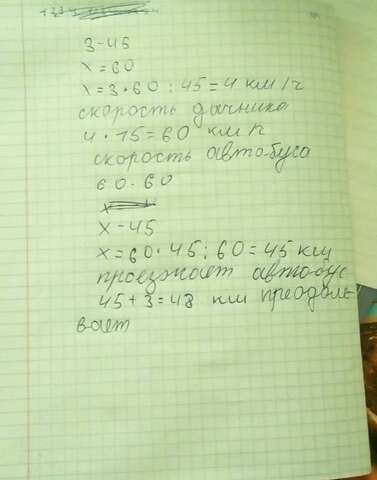 3-45
x-60
x=3•60:45=4 км/ч
скорость дачника
4•15=60 км/ч
скорость автобуса
60-60
x-45
x=60•45:60=45 км
проезжает автобус
45+3=48 км преодоле-
вает